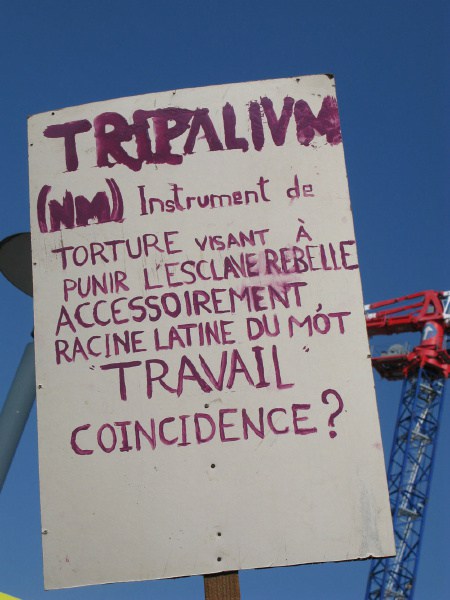 TRIPALIVM
(NM) Instrument de
TORTURE VISANT À
PUNIR L'ESCLAVE REBELLE
ACCESSOIREMENT,
RACINE LATINE DU MÔT
"TRAVAIL"
COINCIDENCE?